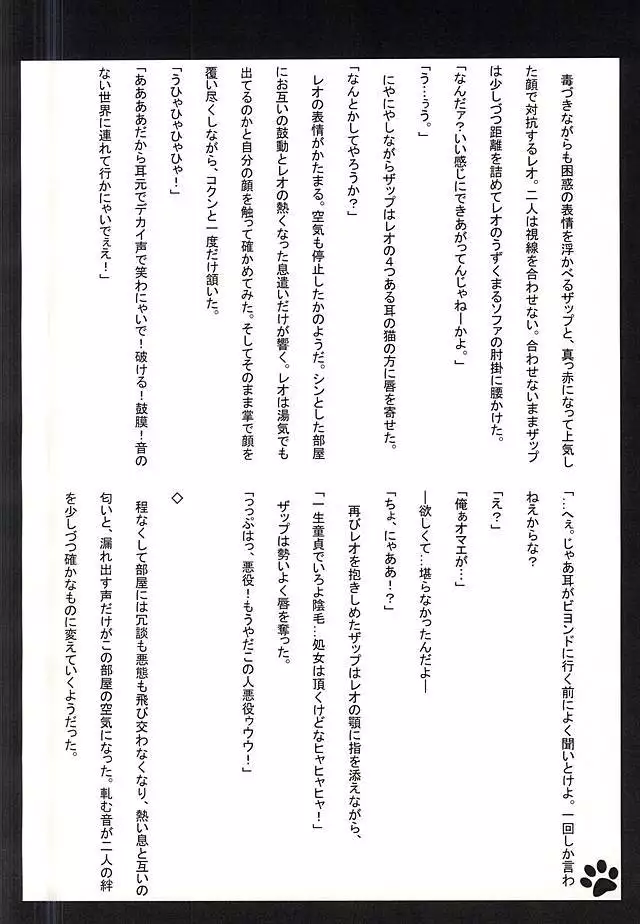 毒づきながらも困惑の表情を浮かべるザップと、真っ赤になって上気し
た顔で対抗するレオ。二人は視線を合わせない。合わせないままザップ
は少しづつ距離を詰めてレオのうずくまるソファの肘掛に腰かけた。
「なんだァ？いい感じにできあがってんじゃねーかよ。」
「う…ぅう。」
　にやにやしながらザップはレオの４つある耳の猫の方に唇を寄せた。
「なんとかしてやろうか？」
　レオの表情がかたまる。空気も停止したかのようだ。シンとした部屋
にお互いの鼓動とレオの熱くなった息遣いだけが響く。レオは湯気でも
出てるのかと自分の顔を触って確かめてみた。そしてそのまま掌で顔を
覆い尽くしながら、コクンと一度だけ頷いた。
「うひゃひゃひゃひゃ！」
「ああああだから耳元でデカイ声で笑わにゃいで！破ける！鼓膜！音の
ない世界に連れて行かにゃいでぇえ！」
「…へぇ。じゃあ耳がビヨンドに行く前によく聞いとけよ。一回しか言わ
ねえからな？
「え？」
「俺ぁオマエが…」
―欲しくて…堪らなかったんだよ―
「ちょ、にゃああ！？」
　再びレオを抱きしめたザップはレオの顎に指を添えながら、
「一生童貞でいろよ陰毛…処女は頂くけどなヒャヒャヒャ！」
　ザップは勢いよく唇を奪った。
「つっぷはっ、悪役！もうやだこの人悪役ゥウウ！」
◇
　程なくして部屋には冗談も悪態も飛び交わなくなり、熱い息と互いの
匂いと、漏れ出す声だけがこの部屋の空気になった。軋む音が二人の絆
を少しづつ確かなものに変えていくようだった。